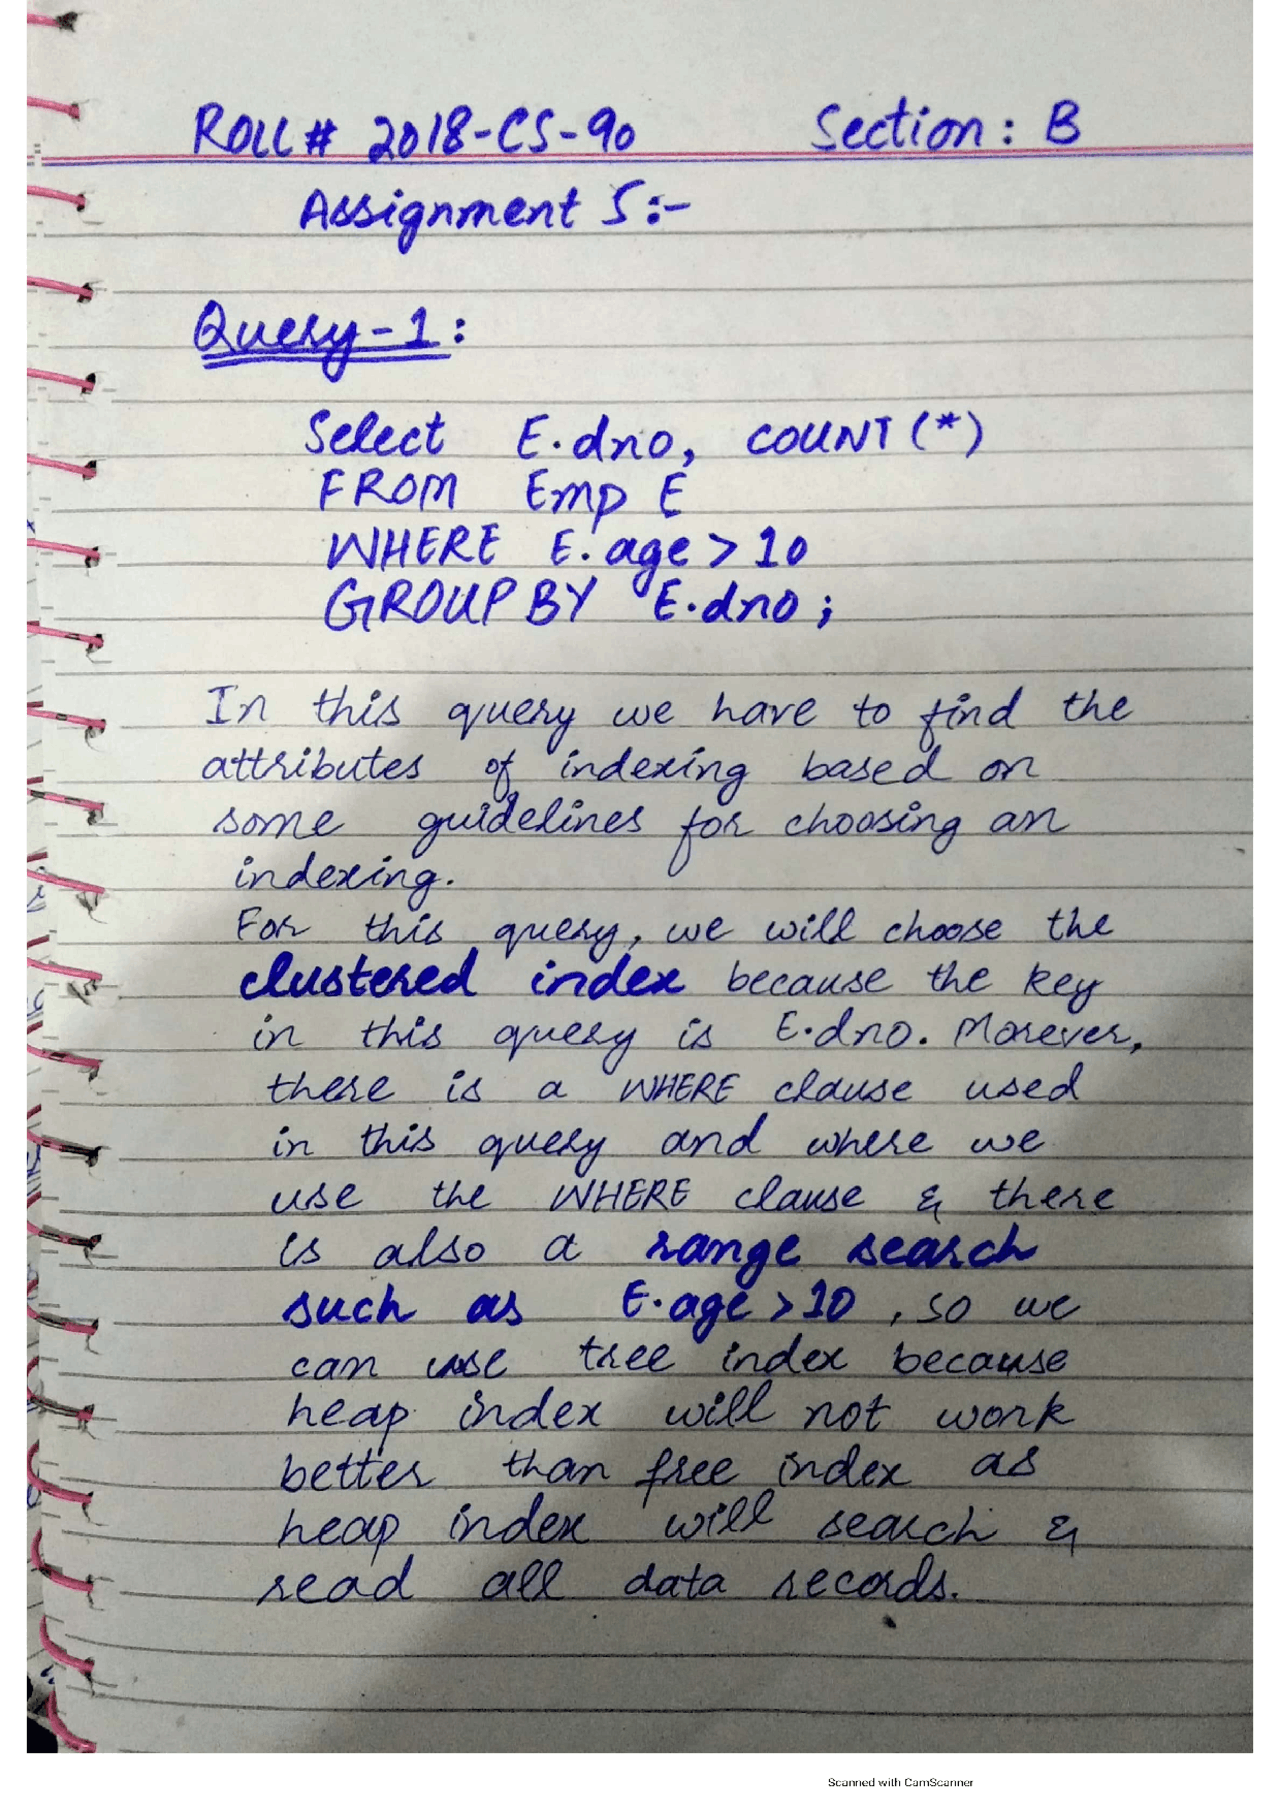 ROLL# 2018-CS-90 Section: B
Assignment 5:-
Query-1:
Select E.dno, COUNT(*)
FROM Emp E
WHERE E.age > 10
GROUP BY E.dno;
In this query we have to find the
attributes of indexing based on
some guidelines for choosing an
indexing.
For this query, we will choose the
clustered index because the key
in this query is E.dno. Morever,
there is a WHERE clause used
in this query and where we
use the WHERE clause & there
is also a range search
such as E.age > 10, so we
can use tree index because
heap index will not work
better than free index as
heap index will search &
read all data records.
Scanned with CamScanner